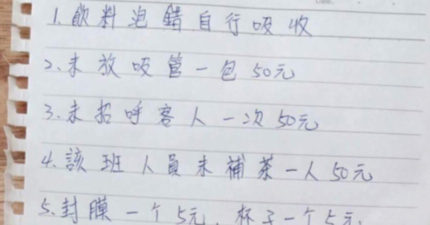 1.飲料泡錯自行吸收
2.未放吸管一包50元
3.未招呼客人一次50元
4.該班人員未補茶一人50元
5.封膜一个5元,杯子一个5元